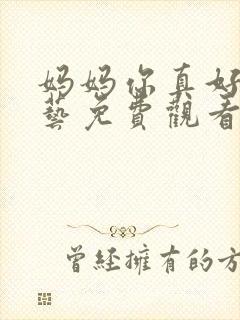 妈妈你真好
藝免费觀看
曾经擁有的方